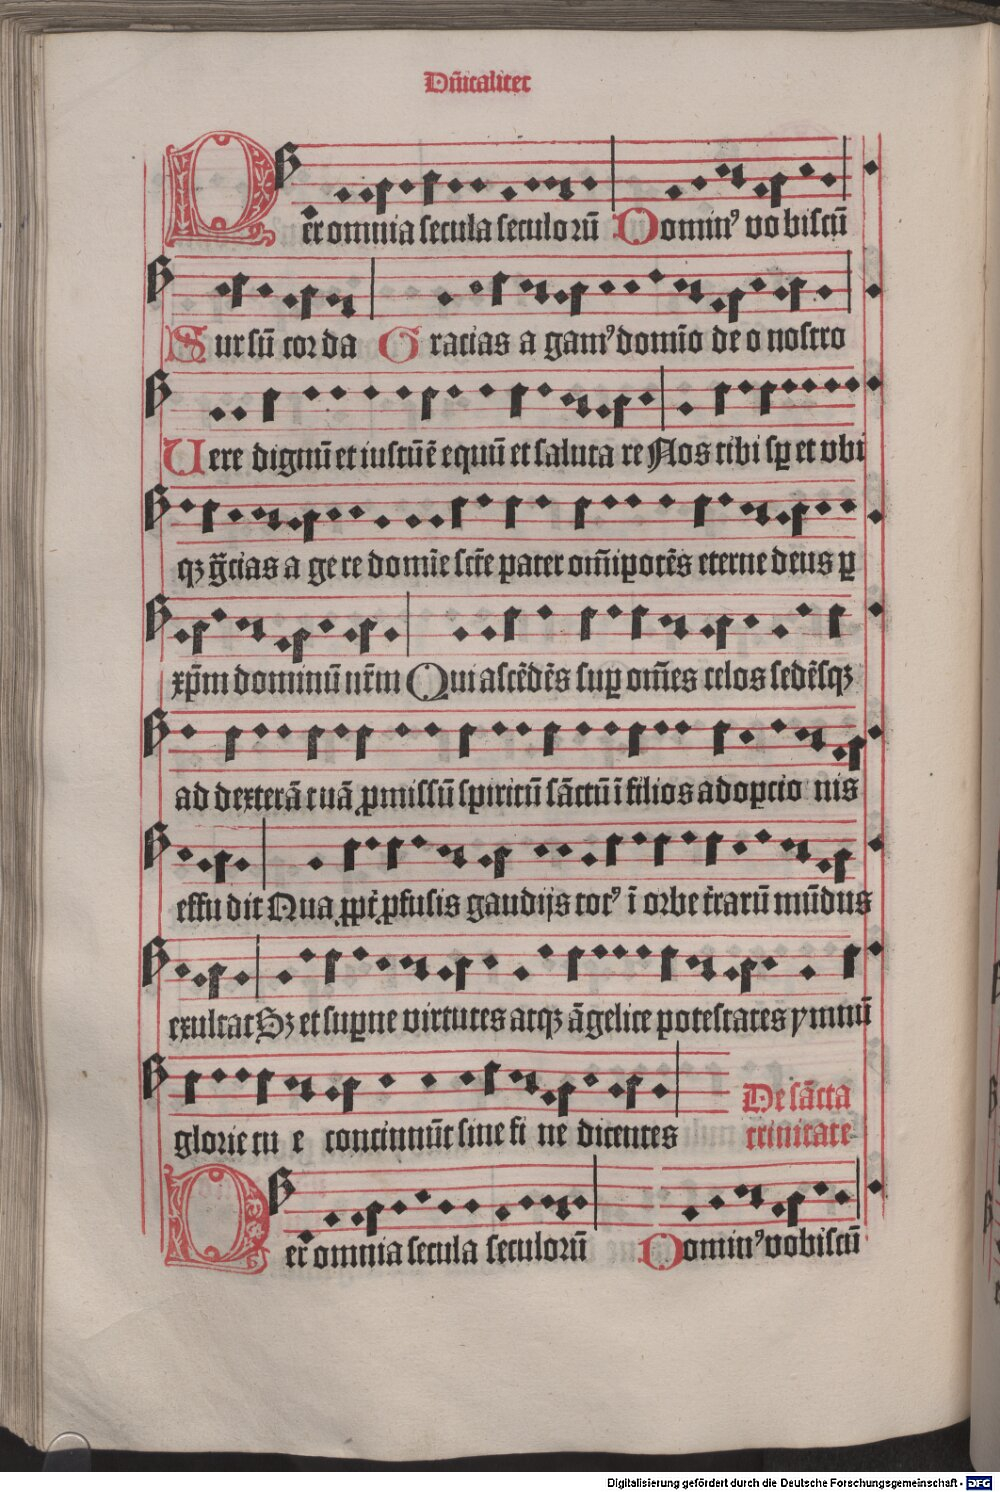 Dn̄icaliter
Per omnia secula seculorū Domin⁹ vobiscū
Sursū corda Gracias agam⁹ domīo deo nostro
Uere dignū et iustū ē equū et salutare Nos tibi sꝑ et vbi
qꝫ gr̄cias agere domīe sct̄e pater om̄ipotēs eterne deus ꝑ
xp̄m dominū nr̄m Qui ascēdēs suꝑ om̄es celos sedēsqꝫ
ad dexterā tuā ꝓmissū spiritū sāctū ī filios adopcionis
effudit Qua ꝓpt̄ ꝓfusis gaudijs tot⁹ ī orbe t̄rarū mūdus
exultat Sꝫ et suꝑne virtutes atqꝫ āgelice potestates ymnū
glorie tue continnūt sine fine dicentes
De sācta
trinitate
Per omnia secula seculorū Domin⁹ vobiscū
Digitalisierung gefördert durch die Deutsche Forschungsgemeinschaft - DFG